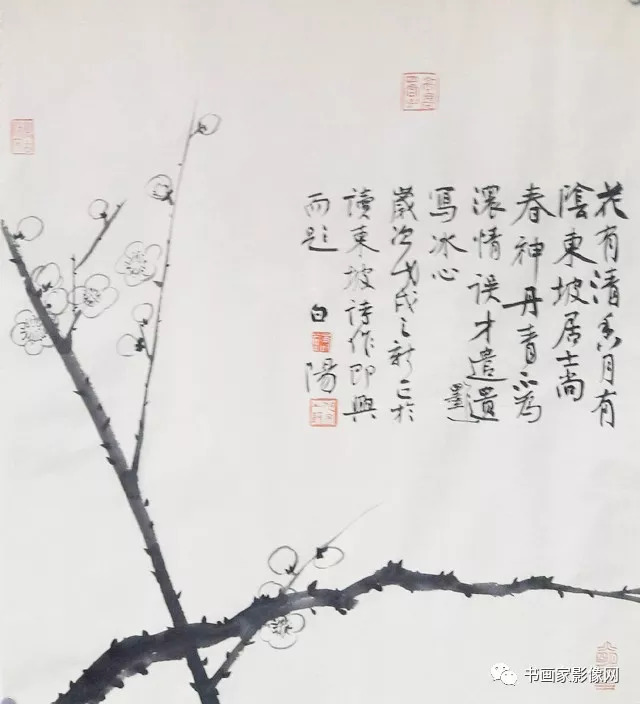 花有清香月有
陰東坡居士尚
春神丹青不為
濃情误才遣遣墨
寫冰心
歲次戊戌之新正於
讀東坡詩作即興
而题
白陽
书画家影像网